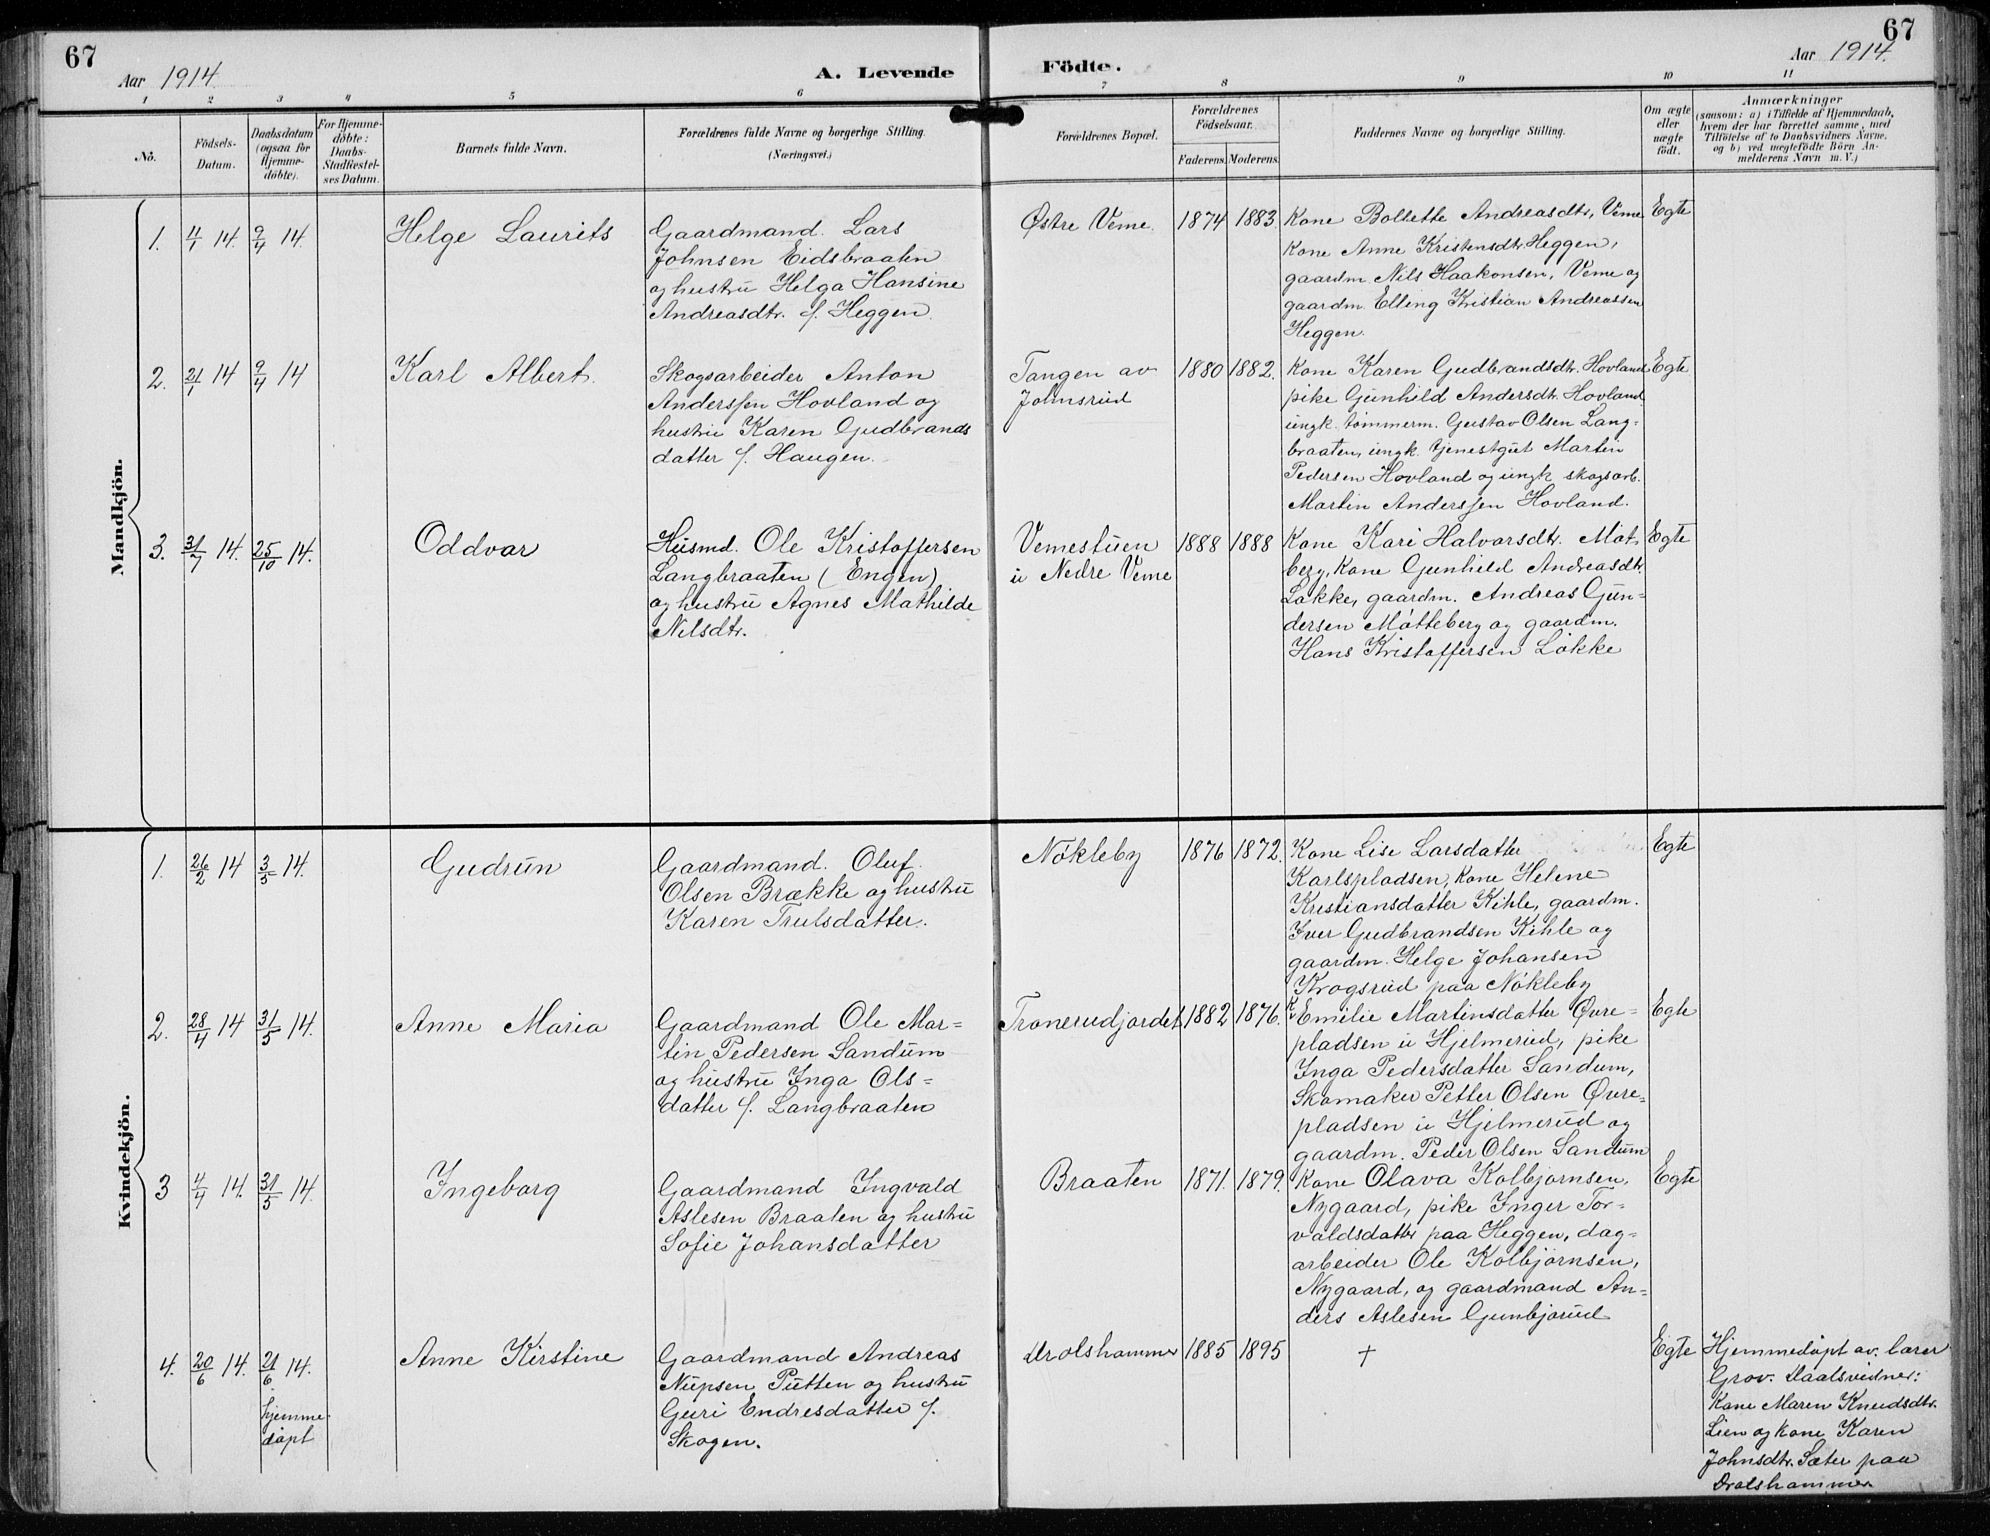 67
Aar 1914.
A. Levende
Födte.
67
Aar 1914.
1 2 3 4 5 6 7 8 9 10 11
No.
Födsels-
Datum.
Daabsdatum
(ogsaa for
Hjemme-
döbte).
For Hjemme-
döbte:
Daabs-
Stadfæstel-
ses Datum.
Barnets fulde Navn.
Forældrenes fulde Navne og borgerlige Stilling.
(Næringsvei.)
Forældrenes Bopæl.
Forældrenes
Födselsaar.
Faderens. Moderens.
Faddernes Navne og borgerlige Stilling.
Om ægte
eller
uægte
födt.
Anmærkninger
(saasom: a) i Tilfælde af Hjemmedaab,
hvem der har forrettet samme, med
Tilföielse af to Daabsvidners Navne,
og b) ved uægtefödte Börn An-
melderens Navn m. V.)
Mandkjön.
1. 4/1 14. 9/4 14.
Helge Laurits
Gaardmand Lars
Johnsen Eidsbraaten
og hustru Helga Hansine
Andreasdtr. f. Heggen.
Østre Veme.
1874 1883.
Kone Bollette Andreasdtr, Veme
Kone Anne Kristensdtr. Heggen,
gaardm. Nils Haakonsen, Veme og
gaardm. Elling Kristian Andreassen
Heggen.
Egte
2. 21/1 14 9/4 14
Karl Albert.
Skogsarbeider Anton
Anderssen Hovland og
hustru Karen Gudbrands
datter f. Haugen.
Tangen av
Johnsrud
1880 1882.
Kone Karen Gudbrandsdtr. Hovland
pike Gunhild Andersdtr. Hovland
ungk. tømmerm. Gustav Olsen Lang-
braaten, ungk. tjenestgut Martin
Pedersen Hovland og ungk. skogsarb.
Martin Anderssen Hovland.
Egte
3. 31/7 14. 25/10 14.
Oddvar
Husmd. Ole Kristoffersen
Langbraaten (Engen)
og hustru Agnes Mathilde
Nilsdtr.
Vemestuen
u Nedre Veme
1888 1888
Kone Kari Halvorsdtr. Møt-
berg, Kone Gunhild Andreasdtr.
Løkke, gaardm. Andreas Gun-
dersen Møtteberg og gaardm.
Hans Kristoffersen Løkke
Egte
Kvindekjön.
1. 26/2 14 3/5 14.
Gudrun
Gaardmand. Oluf
Olsen Brække og hustru
Karen Trulsdatter.
Nøkleby
1876 1872.
Kone Lise Larsdatter
Karlspladsen, Kone Helene
Kristiansdatter Kihle, gaardm.
Iver Gudbrandsen Kihle og
gaardm. Helge Johansen
Krogsrud paa Nøkleby
Egte
2. 28/4 14 31/5 14.
Anne Maria
Gaardmand Ole Mar-
tin Pedersen Sandum
og hustru Inga Ols-
datter f. Langbraaten
Tronerudjordet
1882 1876.
K. Emilie Martinsdatter Øvre-
pladsen u Hjelmerud, pike
Inga Pedersdatter Sandum,
Skomaker Petter Olsen Øvre-
pladsen u Hjelmerud og
gaardm. Peder Olsen Sandum
Egte
3 4/4 14. 31/5 14.
Ingeborg
Gaardmand Ingvald
Aslesen Braaten og hustru
Sofie Johansdatter
Braaten
1871. 1879.
Kone Olava Kolbjørnsen,
Nygaard, pike Inger Tor-
valdsdatter paa Heggen, dag-
arbeider Ole Kolbjørnsen,
Nygaard, og gaardmand An-
ders Aslesen Gunbjørud
Egte
4. 20/6 14. 21/6 14.
hjemme-
døpt
Anne Kirstine
Gaardmand Andreas
Nupsen Putten og hustru
Guri Endresdatter f.
Skogen.
Drolshammer
1885 1895
†
Egte
Hjemmedøpt av lærer
Grov. Daabsvidner:
Kone Maren Knudsdtr.
Lien og kone Karen
Johnsdtr. Sæter paa
Drolshammer